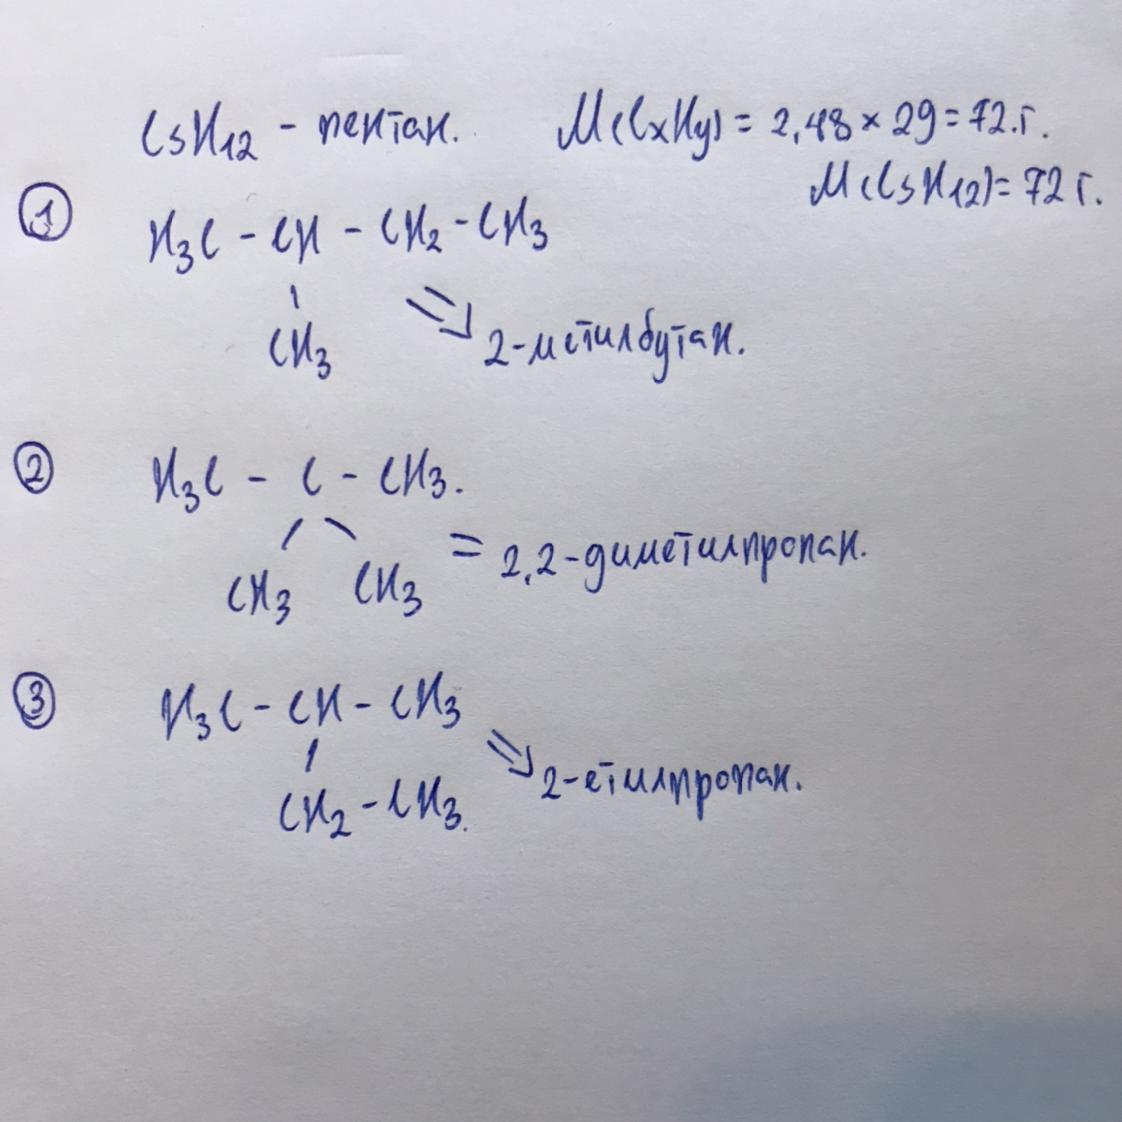 C5H12 - пентан. M(CxHy) = 2,48 × 29 = 72.г.
M(C5H12) = 72 г.
1 H3C - CH - CH2 - CH3
CH3
2-метилбутан.
2 H3C - C - CH3.
CH3 CH3 = 2,2-диметилпропан.
3 H3C - CH - CH3
2-етилпропан.
CH2 - CH3.